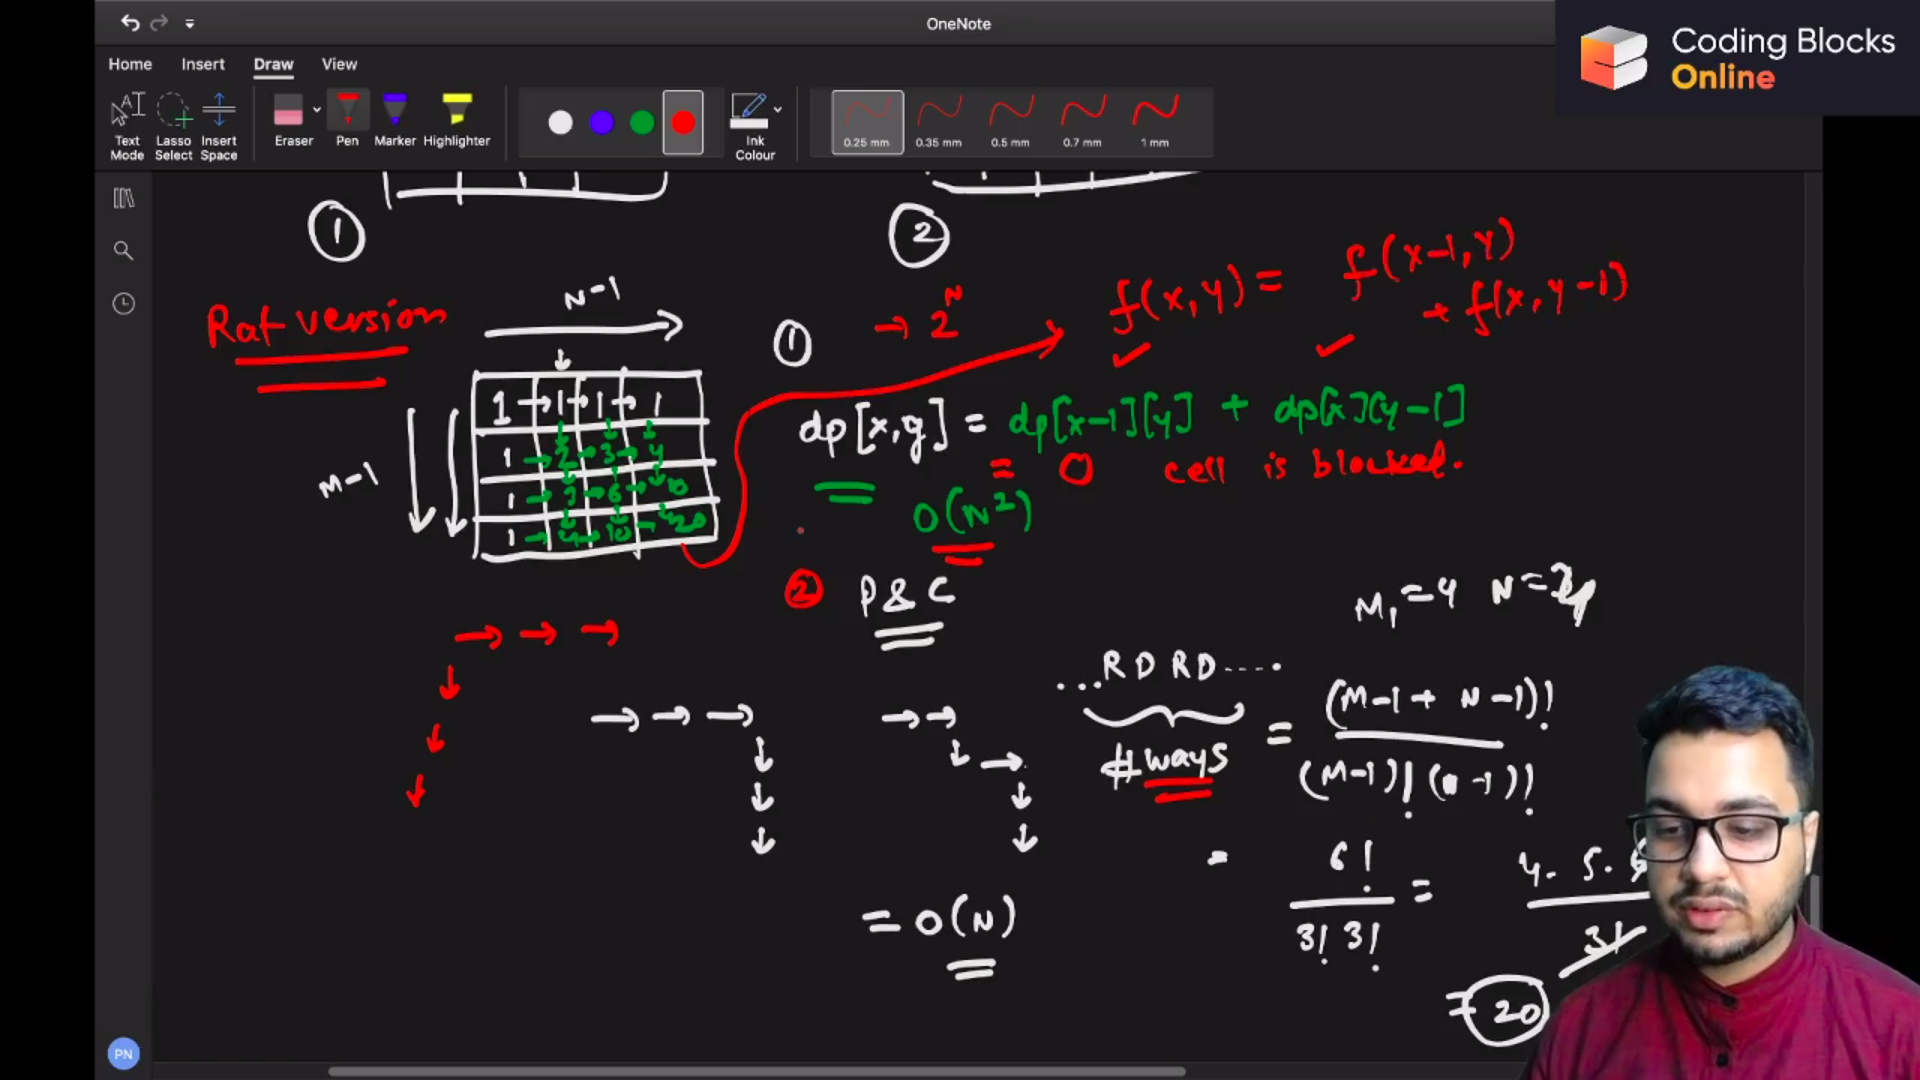 OneNote
Coding Blocks
Online
Home Insert Draw View
Text Mode
Lasso Select
Insert Space
Eraser
Pen
Marker
Highlighter
Ink Colour
0.25 mm
0.35 mm
0.5 mm
0.7 mm
1 mm
1
2
Rat version
N-1
M-1
1 → 1 → 1 → 1
1 → 2 → 3 → 4
1 → 3 → 6 → 10
1 → 4 → 10 → 20
1 → 2^N
f(x,y) = f(x-1,y)
+ f(x,y-1)
dp[x,y] = dp[x-1][y] + dp[x][y-1]
= 0 cell is blocked.
O(N²)
2 P & C
M = 4 N =
...RD RD....
#ways = (M-1 + N-1)!
(M-1)! ( -1)!
= 6! =
3! 3!
4. 5.
3!
= 20
= O(N)
PN